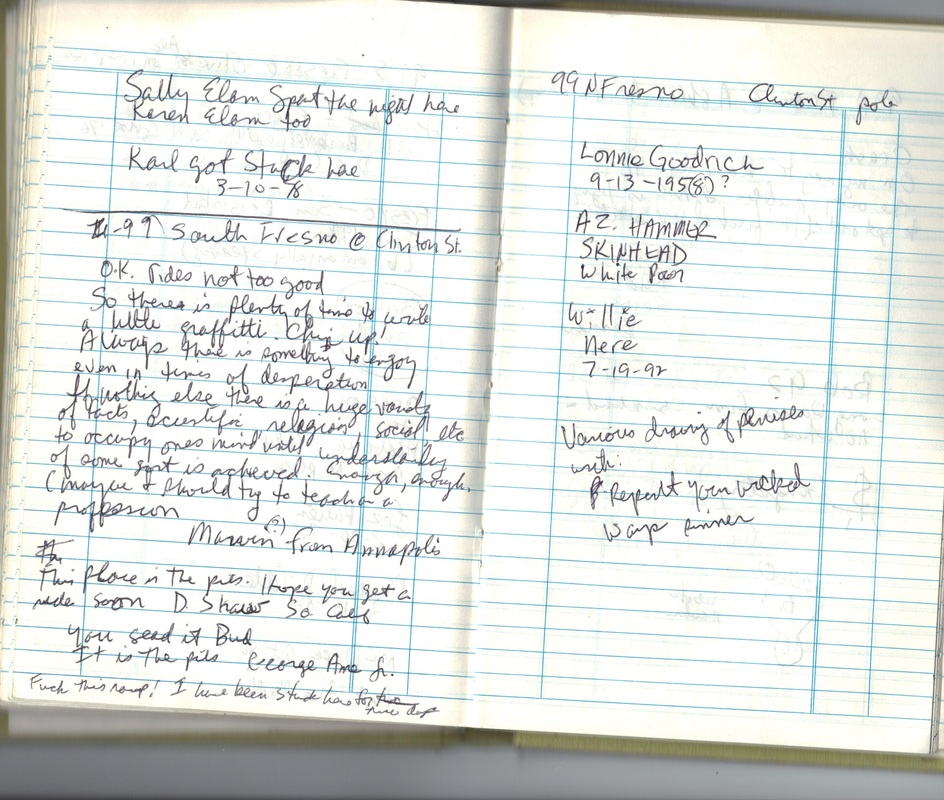 Sally Elam Spent the night here
Karen Elam too
Karl got Stuck here
3-10-78
I-99 South Fresno @ Clinton St.
O.K. rides not too good
So theres is plenty of time to write
a little graffitti. Chin up.
Always there is something to enjoy
even in times of desperation
If nothing else there is a huge variety
of facts, scientific religious social etc
to occupy ones mind until understanding
of some sort is achieved. Enough, enough.
(maybe I should try to teach as a
profession
(?)
Marvin from Annapolis
This place is the pits. I hope you get a
ride soon D. Shaw So Calf
You said it Bud
It is the pits George Ame Jr.
Fuck this ramp! I have been Stuck here for two
days
99 N Fresno Clinton St pole
Lonnie Goodrich
9-13-195(8)?
AZ. HAMMER
SKINHEAD
White Power
Willie
Here
7-19-92
Various drawing of penises
with:
Repent your wicked
ways sinner